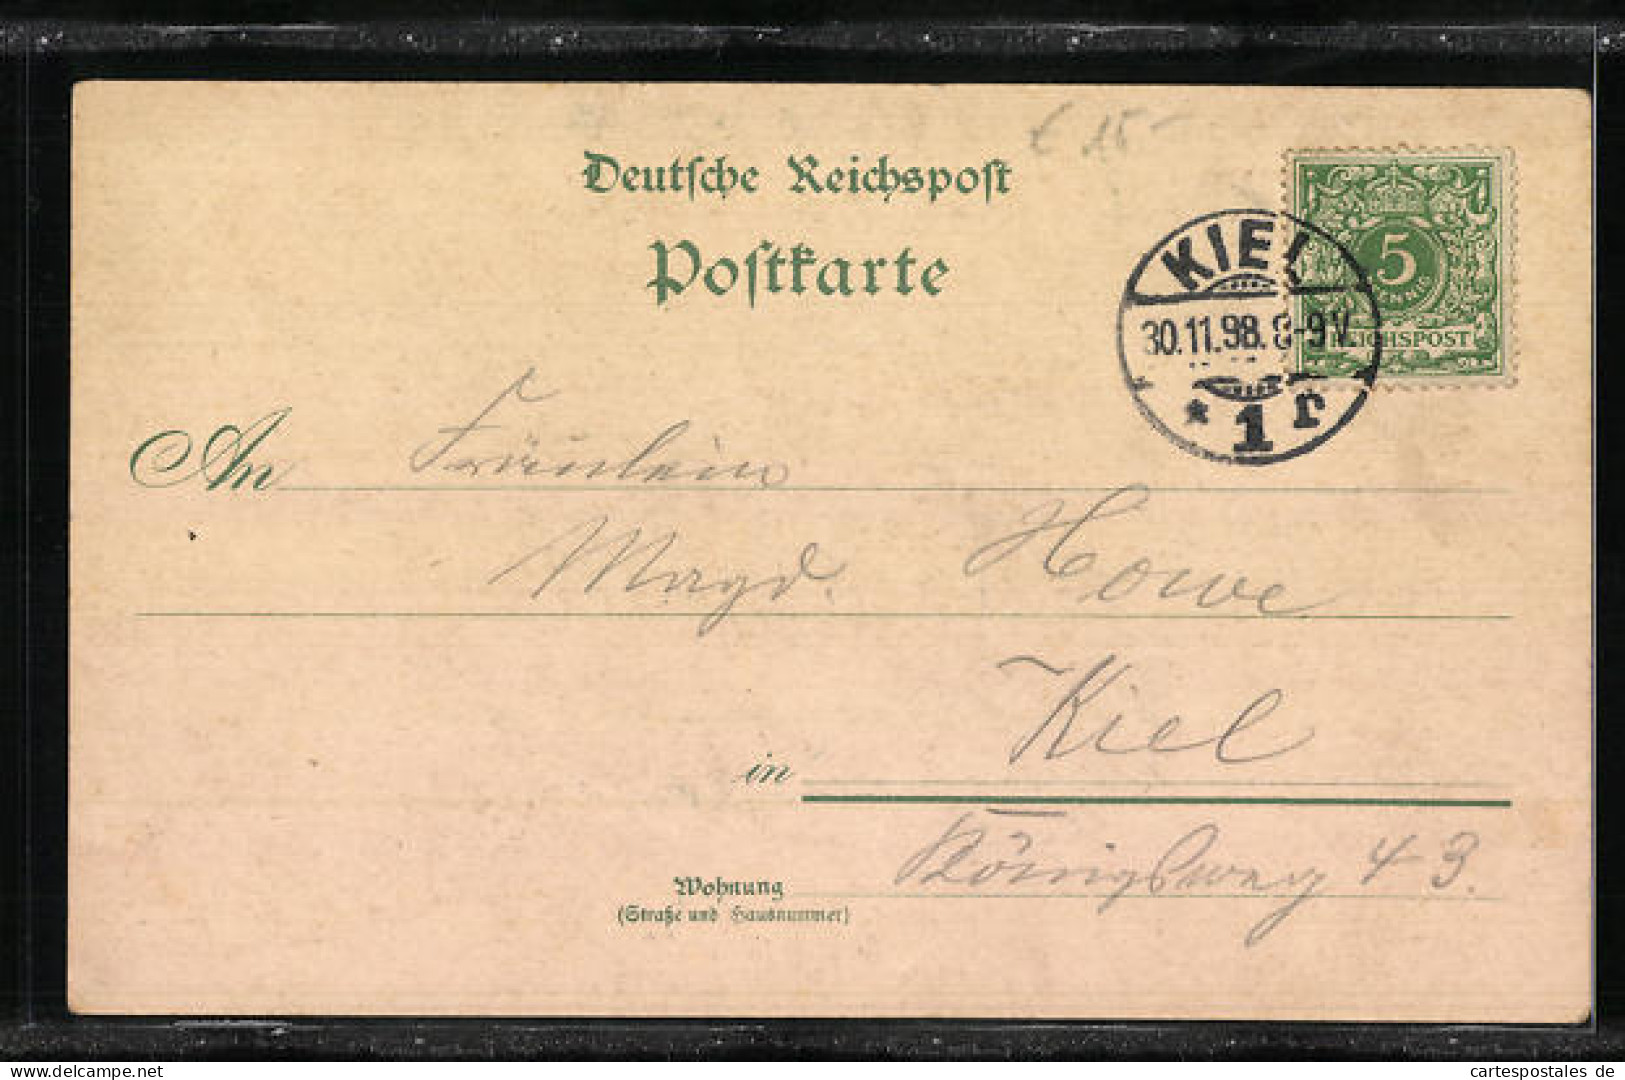 € 15-
Deutsche Reichspost
Postkarte
5
PFENNIG
REICHSPOST
KIEL
30.11.98. 8-9V.
* 1 r
An Fräulein
Magd. Howe
in Kiel
Wohnung Königsweg 43.
(Straße und Hausnummer)
www.delcampe.net
cartespostales de